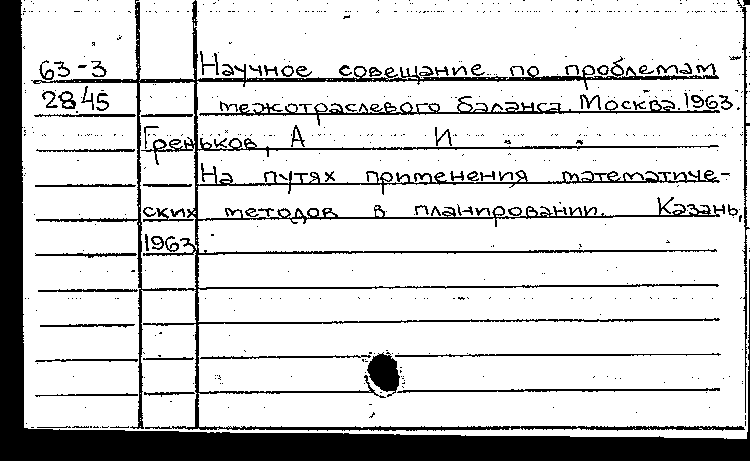 63-3 Научное совещание по проблемам
2845 межотраслевого баланса. Москва. 1963.
Греньков, А И . ,
На путях применения математиче-
ских методов в планировании. Казань,
1963.